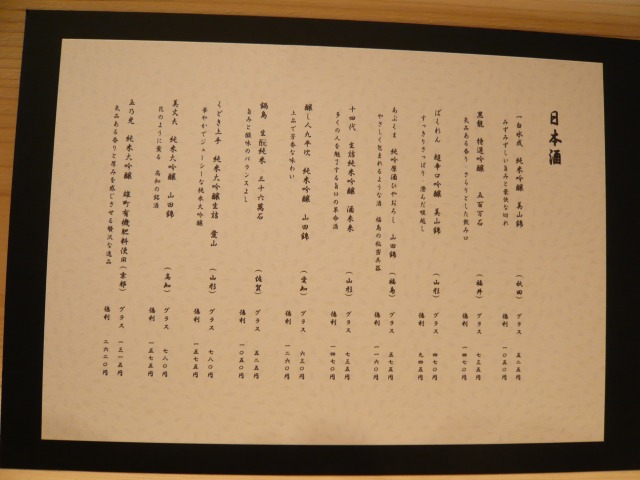 日本酒
一白水成 純米吟醸 美山錦 (秋田) グラス 五二五円
みずみずしい旨みと爽快な切れ 徳利 一〇五〇円
黒龍 特選吟醸 五百万石 (福井) グラス 七三五円
気品ある香り さらりとした飲み口 徳利 一四七〇円
ばくれん 超辛口吟醸 美山錦 (山形) グラス 四七〇円
すっきりさっぱり 澄んだ喉越し 徳利 九四五円
あぶくま 純吟原酒ひやおろし 山田錦 (福島) グラス 五七五円
やさしく包まれるような酒 福島の秘密兵器 徳利 一一六〇円
十四代 生詰純米吟醸 酒未来 (山形) グラス 七三五円
多くの人を魅了する旨口の革命酒 徳利 一四七〇円
醸し人九平次 純米吟醸 山田錦 (愛知) グラス 六三〇円
上品で芳香な味わい 徳利 一二六〇円
鍋島 生酛純米 三十六萬石 (佐賀) グラス 五二五円
旨みと酸味のバランスよし 徳利 一〇五〇円
くどき上手 純米大吟醸生詰 愛山 (山形) グラス 七八〇円
華やかでジューシーな純米大吟醸 徳利 一五七五円
美丈夫 純米大吟醸 山田錦 (高知) グラス 七八〇円
花のように薫る 高知の銘酒 徳利 一五七五円
五乃光 純米大吟醸 雄町有機肥料使用(京都) グラス 一三一五円
気品ある香りと厚みを感じさせる贅沢な逸品 徳利 二六二〇円